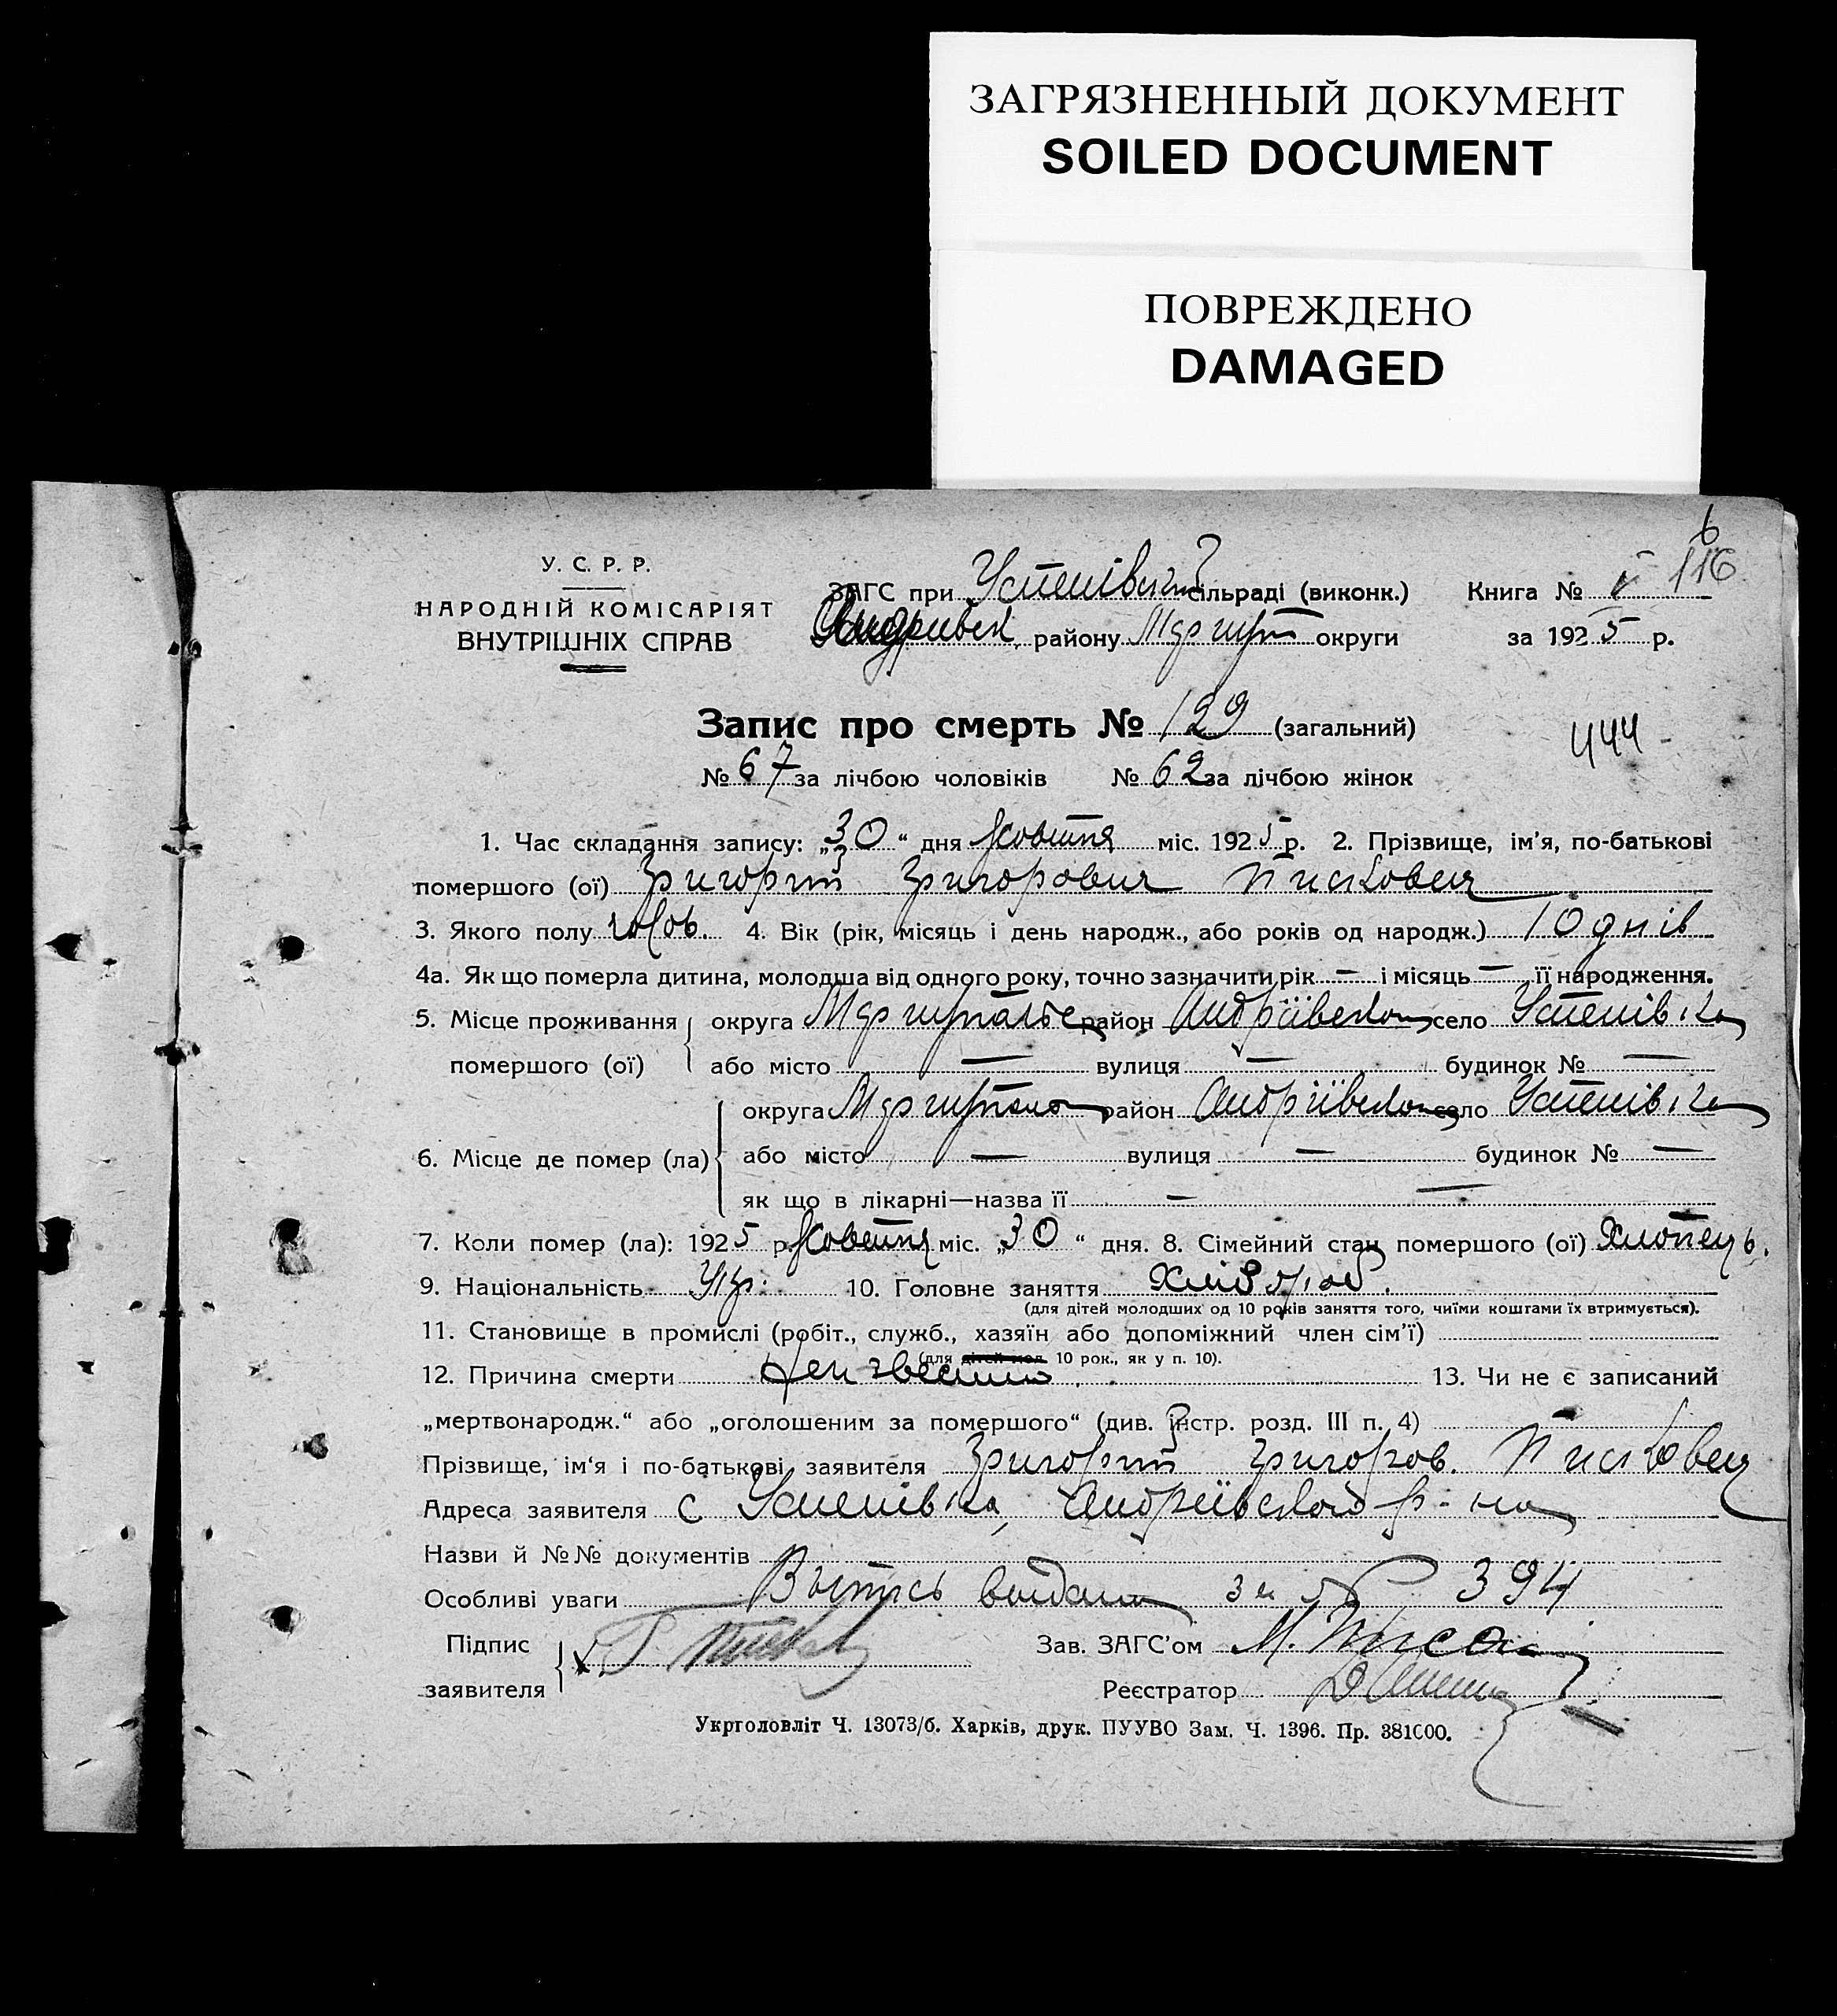 ЗАГРЯЗНЕННЫЙ ДОКУМЕНТ
SOILED DOCUMENT
ПОВРЕЖДЕНО
DAMAGED
6
116
У. С. Р. Р.
НАРОДНІЙ КОМІСАРІЯТ
ВНУТРІШНІХ СПРАВ
ЗАГС при Успенівській сільраді (виконк.) Книга №
району Маріуп округи за 1925 р.
Запис про смерть № 129 (загальний)
444
№ 67 за лічбою чоловіків № 62 за лічбою жінок
1. Час складання запису: „30“ дня Жовтня міс. 1925 р. 2. Прізвище, ім'я, по-батькові
помершого (ої) Григорій Григорович Писковец
3. Якого полу чолов. 4. Вік (рік, місяць і день народж., або років од народж.) 10 днів
4а. Як що померла дитина, молодша від одного року, точно зазначити рік — і місяць — її народження.
5. Місце проживання округа район село Успенівка
помершого (ої) або місто — вулиця — будинок № —
округа район село Успенівка
6. Місце де помер (ла) або місто — вулиця — будинок № —
як що в лікарні—назва її — —
7. Коли помер (ла): 1925 р. Жовтня міс. „30“ дня. 8. Сімейний стан помершого (ої) Хлопець.
9. Національність Укр. 10. Головне заняття Хлібороб.
(для дітей молодших од 10 років заняття того, чиїми коштами їх втримується).
11. Становище в промислі (робіт., служб., хазяїн або допоміжний член сім'ї)
(для дітей мол. 10 рок., як у п. 10).
12. Причина смерти 13. Чи не є записаний
„мертвонародж.“ або „оголошеним за помершого“ (див. інстр. розд. III п. 4) —
Прізвище, ім'я і по-батькові заявителя Григорій Григоров. Писковец
Адреса заявителя с Успенівка, р-на
Назви й №№ документів
Особливі уваги видана за № 394
Підпис Зав. ЗАГС'ом М.
заявителя Реєстратор
Укрголовліт Ч. 13073/б. Харків, друк. ПУУВО Зам. Ч. 1396. Пр. 381000.